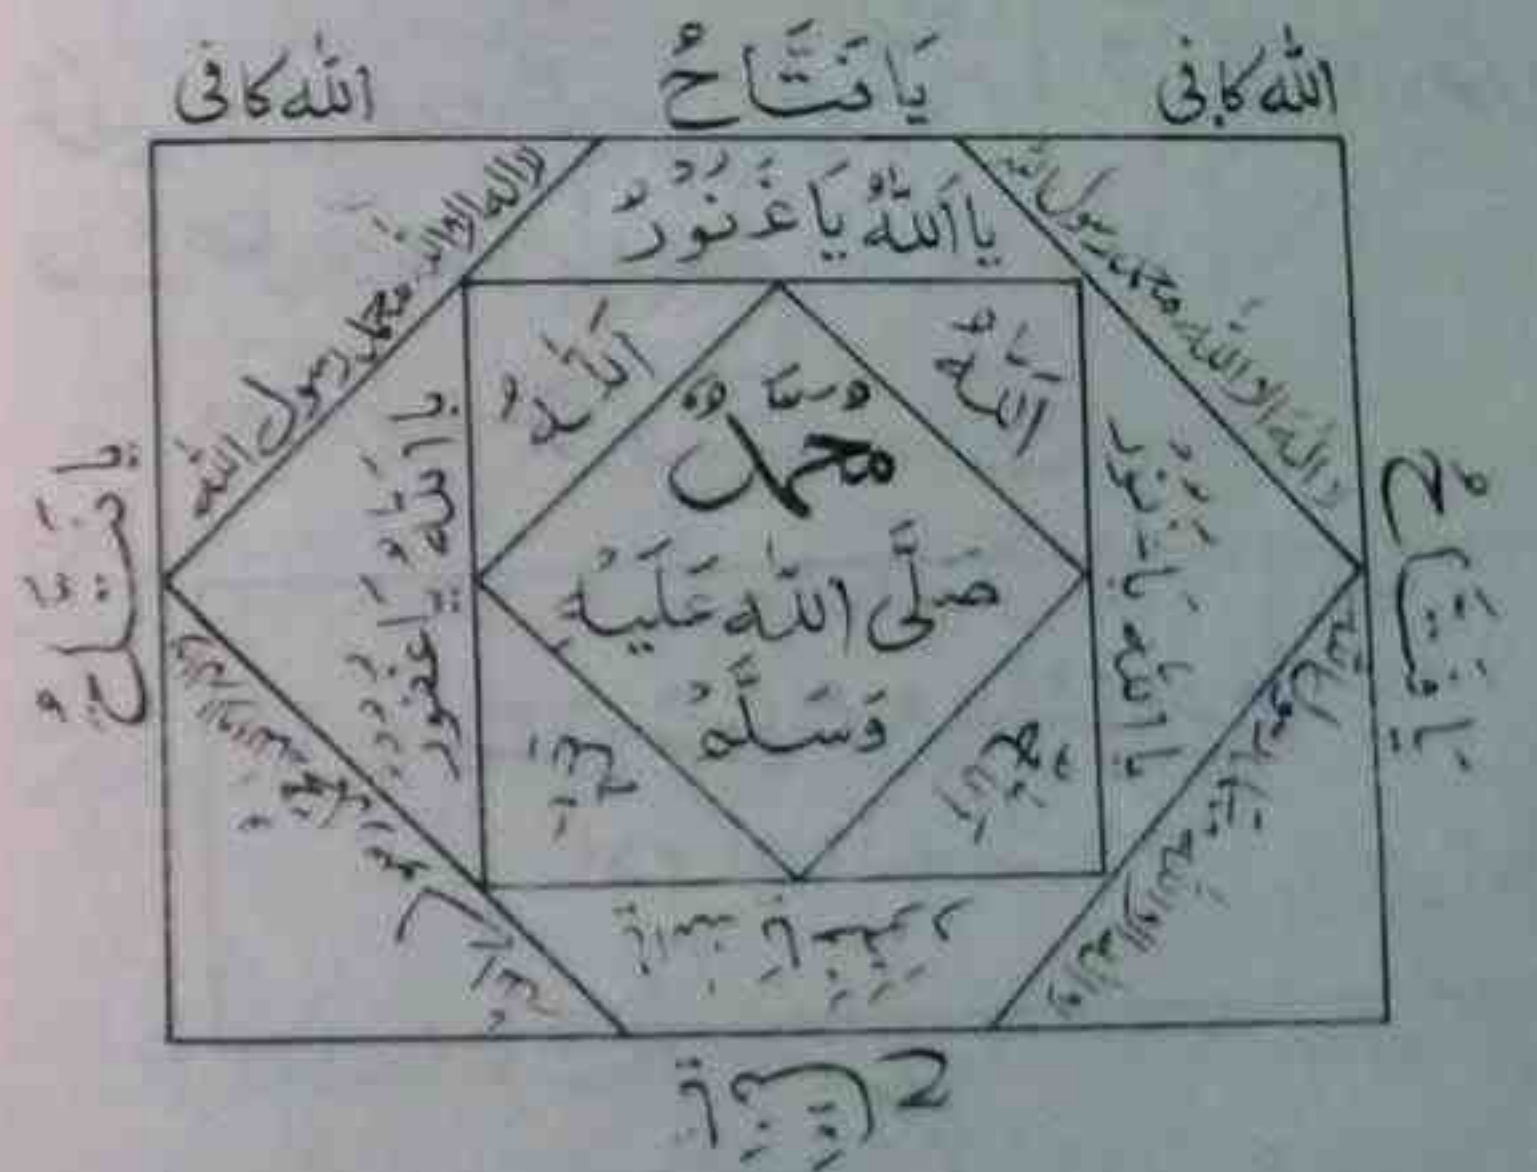 اللہ کافی
يَا فَتَّاحُ
اللہ کافی
لا اله الا الله محمد رسول الله
يا اَللّٰهُ يَا غَفُوْرُ
لا اله الا الله محمد رسول الله
اَللّٰهُ
اَللّٰهُ
يَا فَتَّاحُ
يا اَللّٰهُ يَا غفور
مُحَمَّدٌ
صَلَّى اللّٰه عَلَيْهِ
وَسَلَّمْ
يا الله يَا غَفُوْرُ
يَا فَتَّاحُ
اَللّٰهُ
اَللّٰهُ
لا اله الا الله محمد رسول الله
يا الله يا غفور
لا اله الا الله محمد رسول الله
يَا فَتَّاحُ